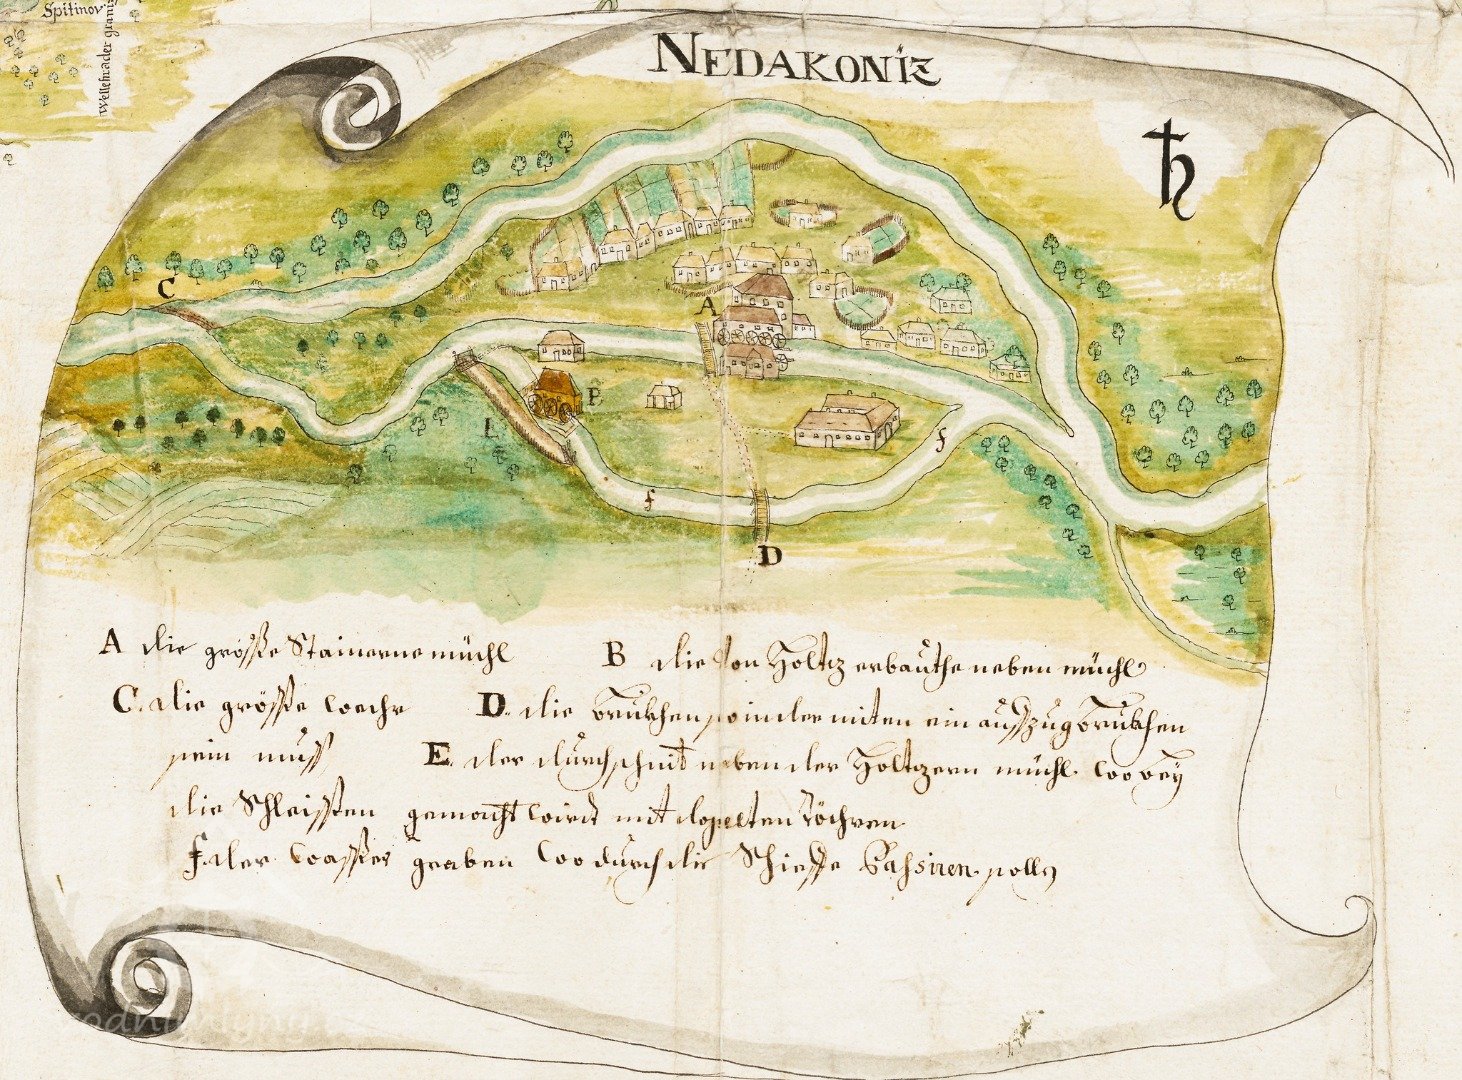 Spitinov
Wellehrader granitz
NEDAKONIZ
♄
C
A
B
L
f
f
D
A die größe Stainerne mühl B die Von Holtz erbauthe neben mühl
C. die größe wehr D. die brukhen so in der miten ein außzug brukhen
sein muß E. der durchschnit neben der Holtzern mühl. wo bey
die Schleißen gemacht wirdt mit dopelten röhren
f. der wasser graben wo durch die Schieffe Pahsiren solln